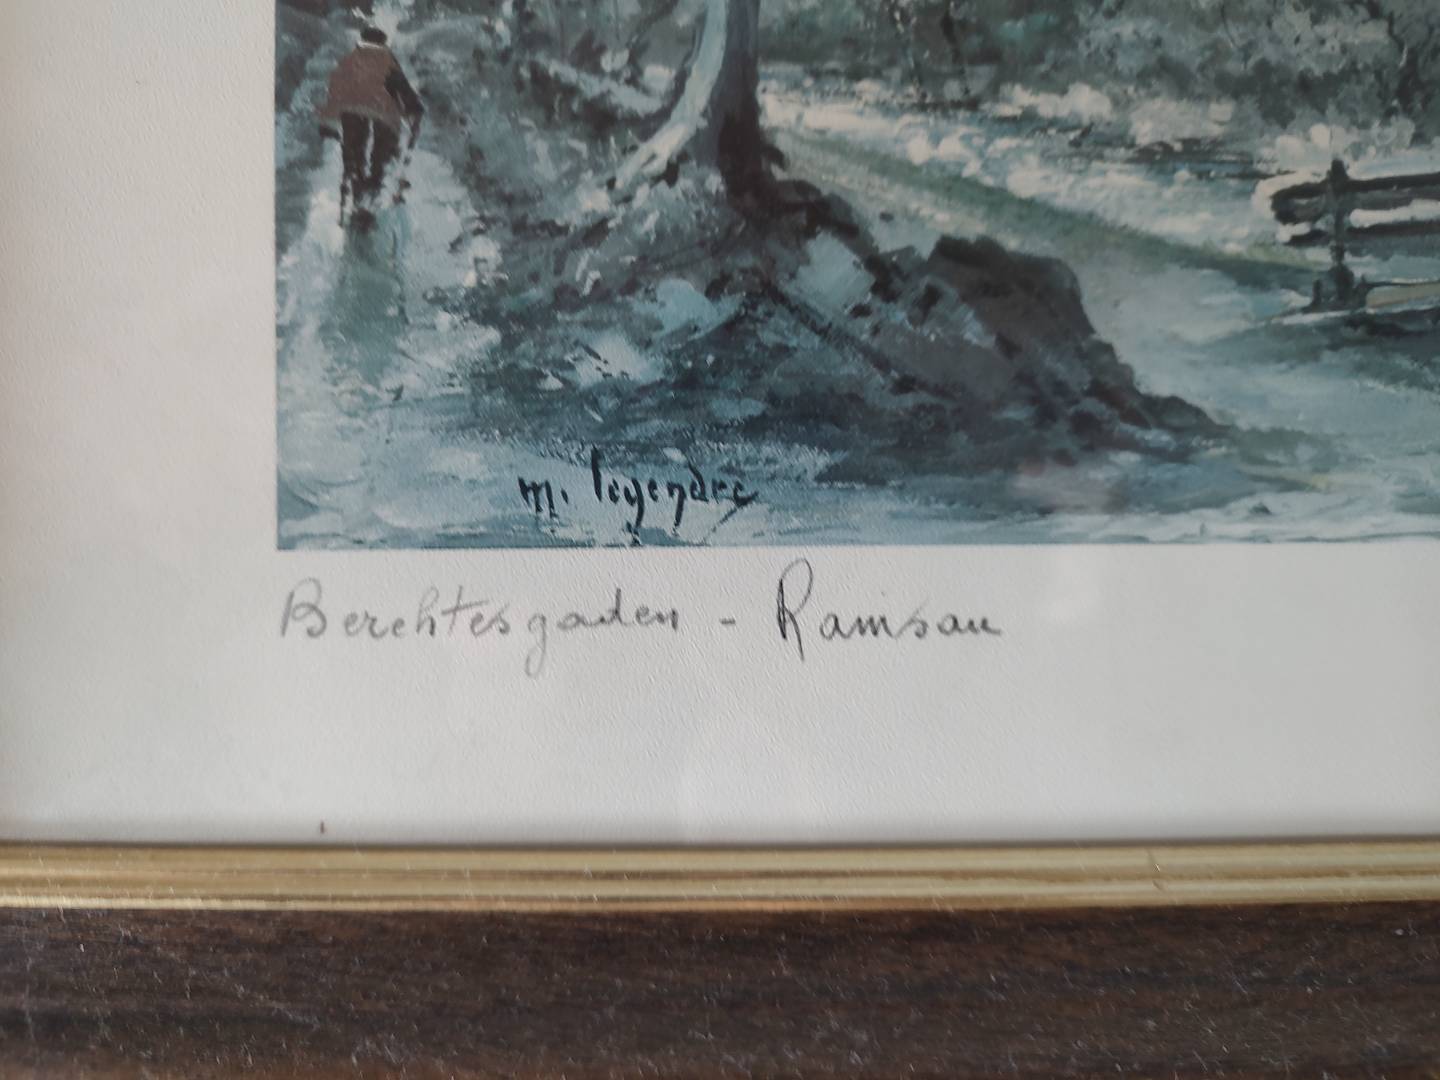 m. legendre
Berchtesgaden - Ramsau